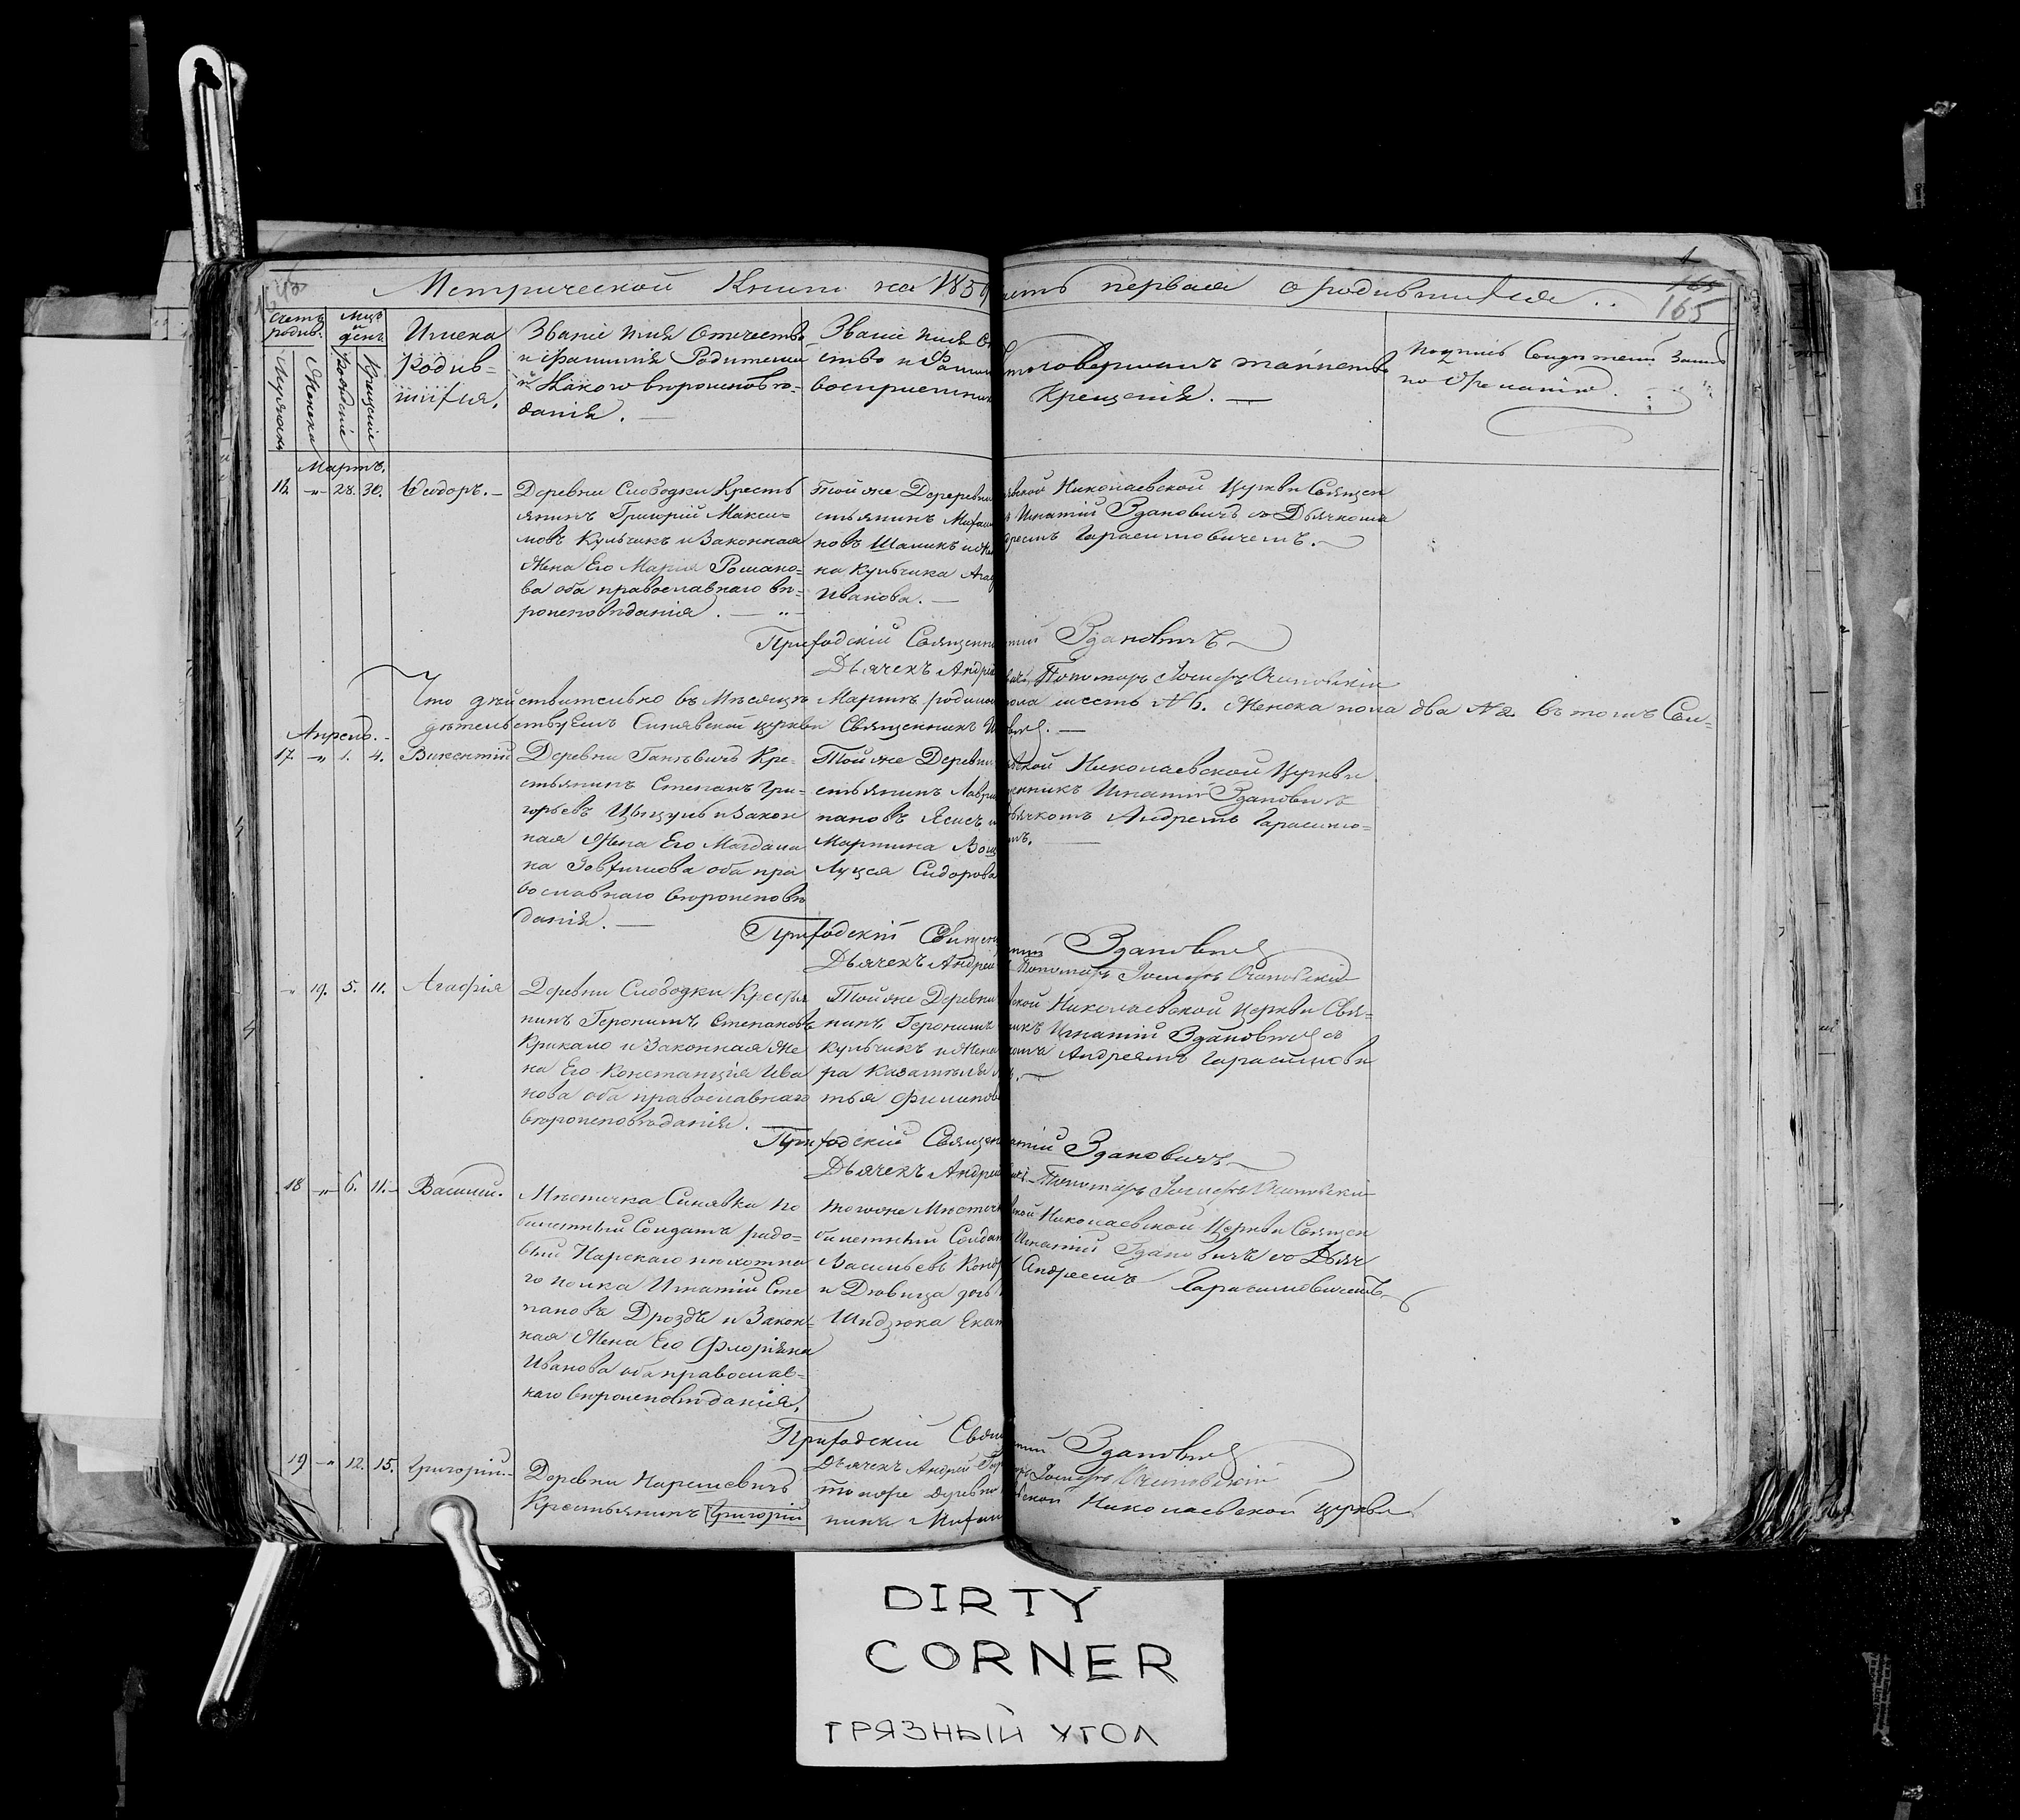 Метрической Книги на 185 часть первая о родившихся..
165
165
Счетъ родив.
Мцъ и день
Мужеска
Женска
Рожденіе
Крещеніе
Имена
родив=
шихся.
Званіе Имя Отчество
и Фамилія Родителей
и Какого вѣроисповѣ=
данія.
Званіе Имя От
ство и Фамил
воспріемник
то совершалъ таинство
Крещенія.
Подпись Свидѣтелей Запис
по Желанію.
Мартъ.
16. „ 28. 30. Ѳеодоръ.
Деревни Слободки Кресть
янинъ Григорій Макси=
мовъ Кульчикъ и Законная
Жена Его Марія Романо=
ва оба православнаго вѣ=
роисповѣданія.
Той же Дереревни
стьянинъ Михаи
новъ Шаликъ и Же
на Кульчика Ага
Иванова.
вской Николаевской Церкви Священ
Игнатій Здановичъ со Дьячкомъ
дреемъ Гарасимовичемъ.
Приходскій Священни
тій Здановичъ
Дьячекъ Андрей
Пономарь Іосифъ
Что дѣйствительно въ Мѣсяцѣ Мартѣ родило
пола шесть № 6. Женска пола два № 2. въ томъ Сви=
дѣтельствуемъ Синявской церкви Священникъ И
Апрель.
17. „ 1. 4. Викентій
Деревни Ганѣвичъ Кре=
стьянинъ Степанъ Гри=
горьевъ Цыцуль и Закон
ная Жена Его Магдали
на Іовхимова оба пра
вославнаго вѣроисповѣ
данія.
Той же Деревни
стьянинъ Лаври
пановъ Ясись и
Мартина
Луція Сидорова
вской Николаевской Церкви
енникъ Игнатій Здановичъ
ьячкомъ Андреемъ Гарасимо=
мъ.
Приходскій Священ
Здановичъ
Дьячекъ Андрей
Пономарь Іосифъ
„ 19. 5. 11. Агафія
Деревни Слободки Крестья
нинъ Геронимъ Степановъ
Крикало и Законная Же
на Его Констанція Ива
нова оба православнаго
вѣроисповѣданія.
Той же Деревни
нинъ Геронимъ
Кульчикъ и Жена
ра
тья Филипов
ской Николаевской Церкви Свя=
никъ Игнатій Здановичъ съ
комъ Андреемъ Гарасимови
Приходскій Священ
атій Здановичъ
Дьячекъ Андрей
Пономарь Іосифъ
18 „ 6. 11. Василій.
Мѣстечка Синявки по
билетный Солдатъ рядо=
вый Нарскаго пѣхотна
го полка Игнатій Сте
пановъ Дроздъ и Закон=
ная Жена Его Флоріяна
Иванова оба православ=
наго вѣроисповѣданія.
того же Мѣстеч
билетный Солдат
Васильевъ Конд
и Дѣвица доч
Шидзюка Екат
ской Николаевской Церкви Священ
Игнатій Здановичъ со Дьяч
Андреемъ Гарасимовичемъ
Приходскій Свящ
Здановичъ
Дьячекъ Андрей Гар
Іосифъ
19 „ 12. 15. Григорій
Деревни
Крестьянинъ Григорій
той же Деревни
нинъ Михаи
вской Николаевской церкви
DIRTY
CORNER
ГРЯЗНЫЙ УГОЛ